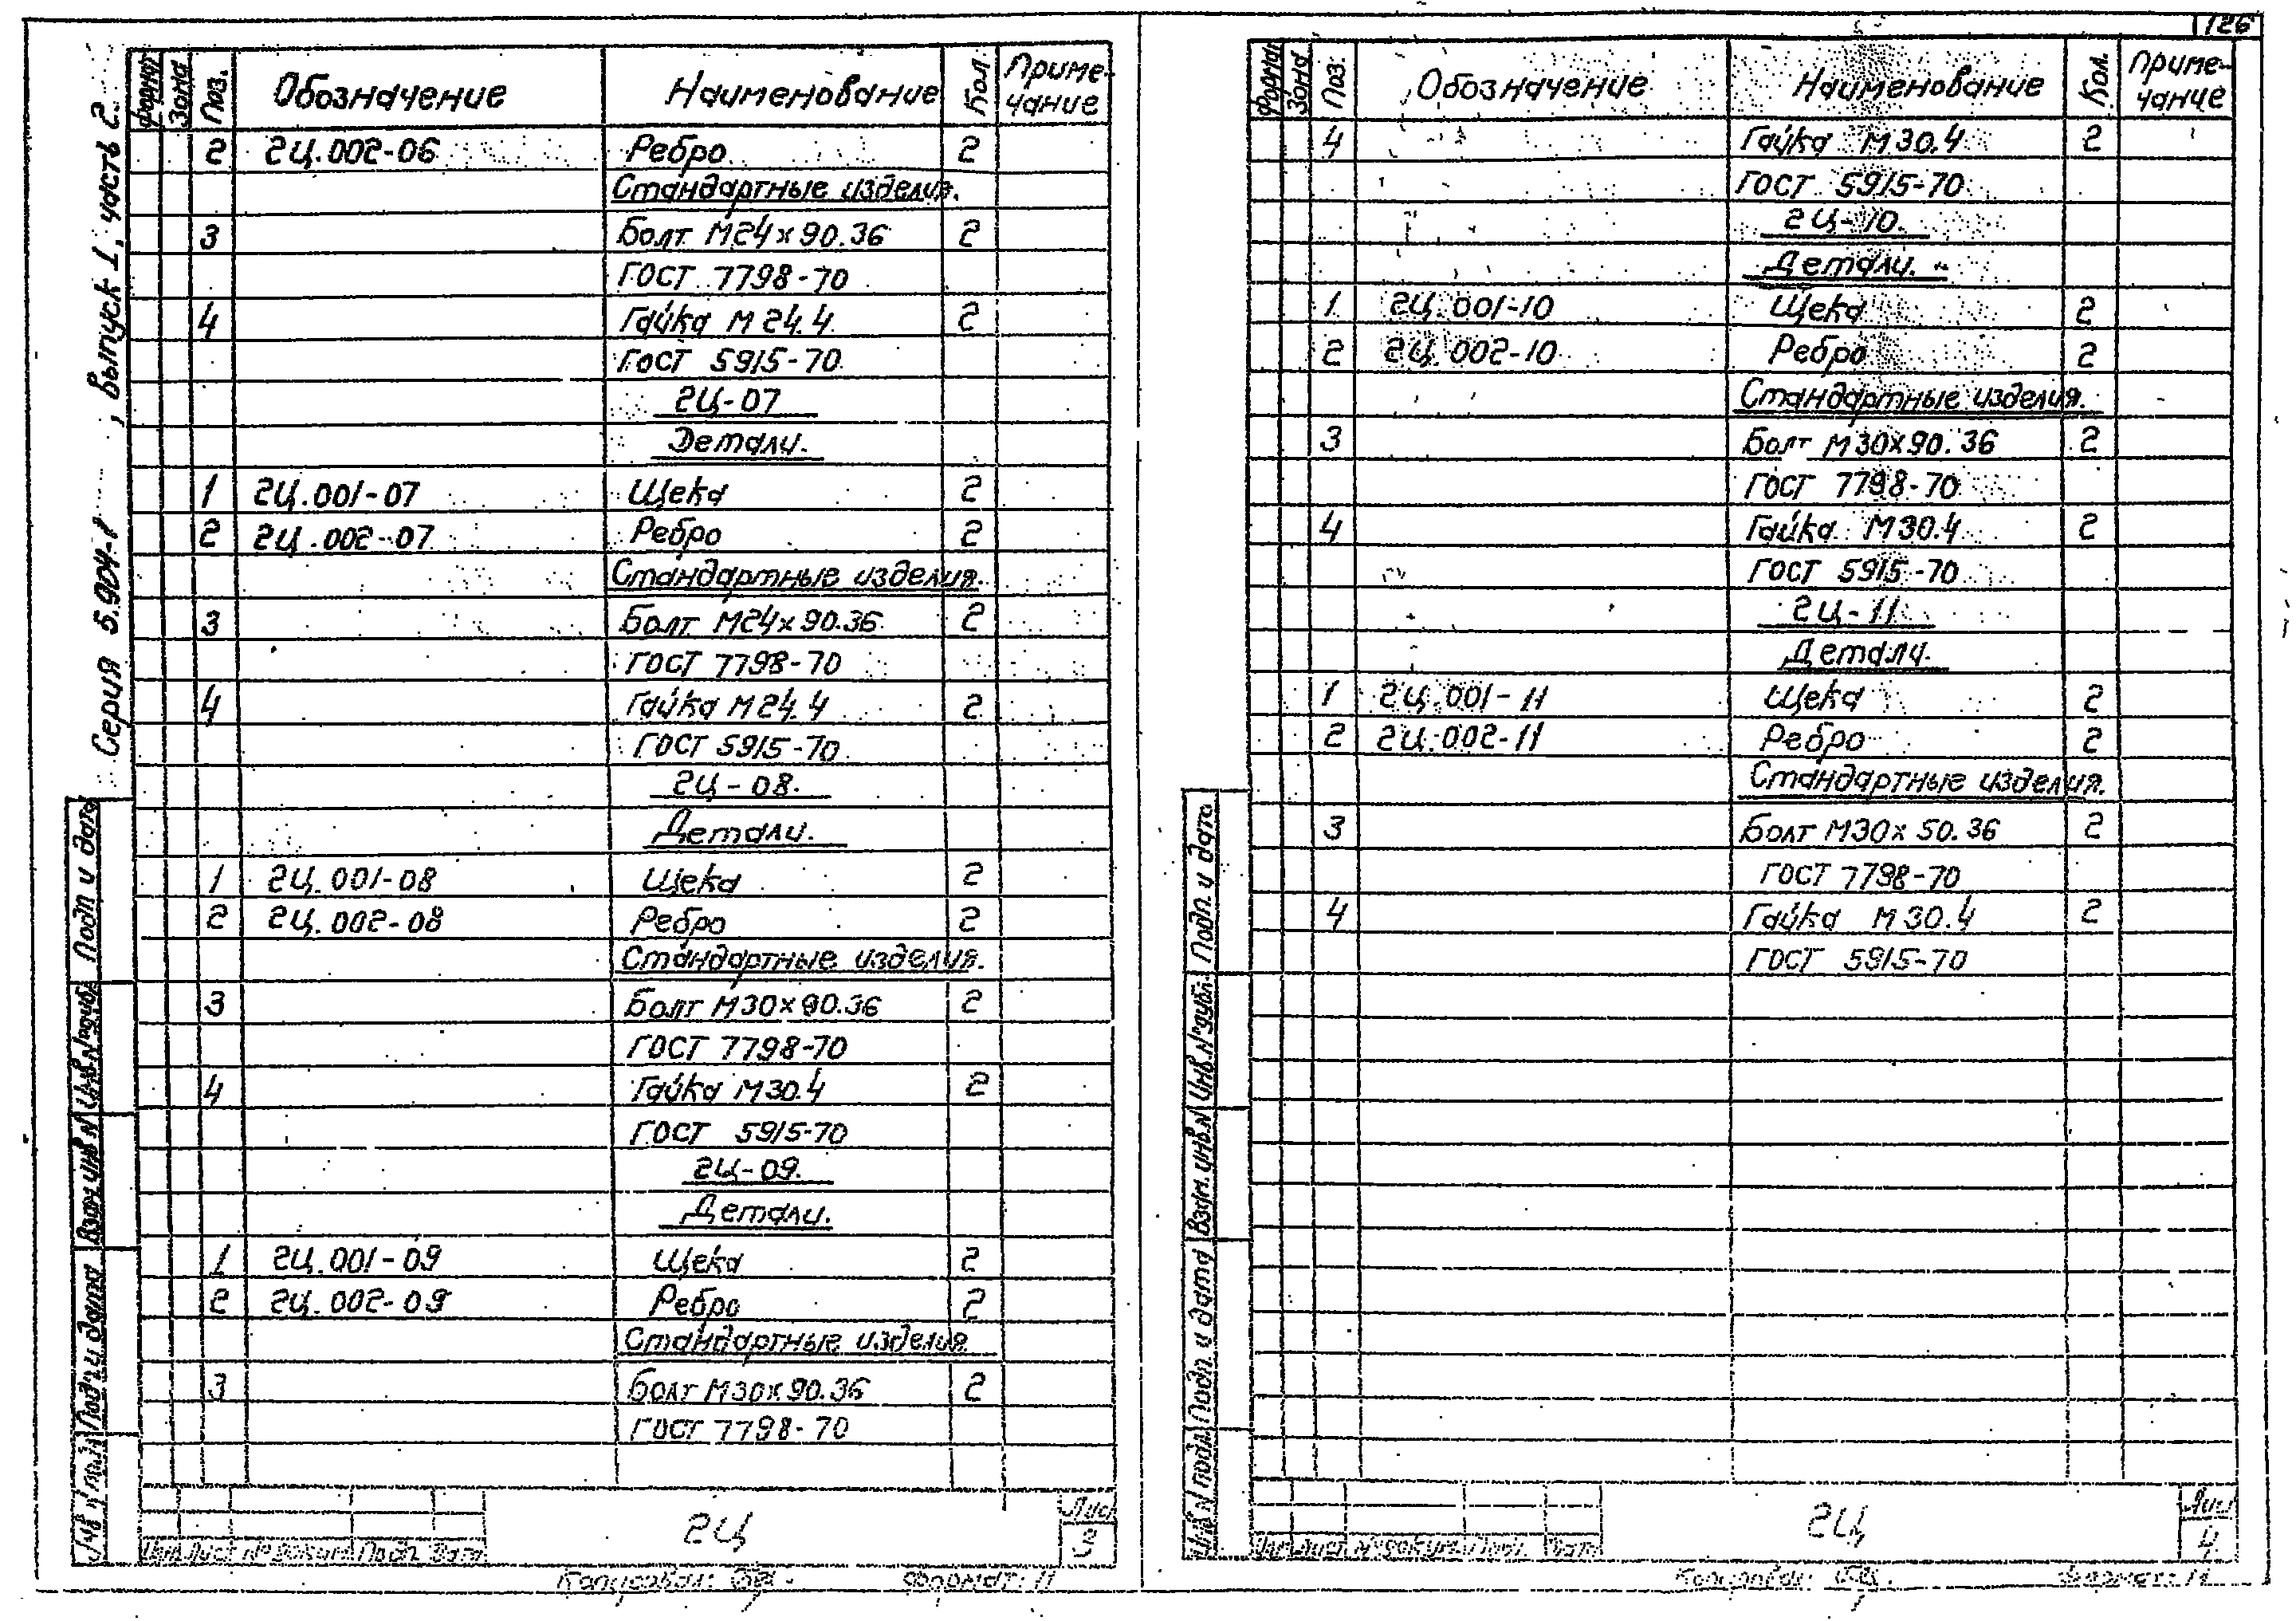 126
Серия 5.904-1 , выпуск 1, часть 2.
Формат Зона Поз. Обозначение Наименование Кол. Приме-
чание
2 2Ц.002-06 Ребро 2
Стандартные изделия.
3 Болт М24х90.36 2
ГОСТ 7798-70
4 Гайка М24.4 2
ГОСТ 5915-70
2Ц-07
Детали.
1 2Ц.001-07 Щека 2
2 2Ц.002-07 Ребро 2
Стандартные изделия.
3 Болт М24х90.36 2
ГОСТ 7798-70
4 Гайка М24.4 2
ГОСТ 5915-70
2Ц-08.
Детали.
1 2Ц.001-08 Щека 2
2 2Ц.002-08 Ребро 2
Стандартные изделия.
3 Болт М30х90.36 2
ГОСТ 7798-70
4 Гайка М30.4 2
ГОСТ 5915-70
2Ц-09.
Детали.
1 2Ц.001-09 Щека 2
2 2Ц.002-09 Ребро 2
Стандартные изделия
3 Болт М30х90.36 2
ГОСТ 7798-70
Подп и дата
Инв.N дубл.
Взам инв N
Подп и дата
Инв N подл
Изм Лист № докум Подп Дата
2Ц
Лист
3
Копировал: Формат: 11
Формат Зона Поз. Обозначение Наименование Кол. Приме-
чание
4 Гайка М30.4 2
ГОСТ 5915-70
2Ц-10.
Детали.
1 2Ц.001-10 Щека 2
2 2Ц.002-10 Ребро 2
Стандартные изделия.
3 Болт М30х90.36 2
ГОСТ 7798-70
4 Гайка М30.4 2
ГОСТ 5915-70
2Ц-11
Детали.
1 2Ц.001-11 Щека 2
2 2Ц.002-11 Ребро 2
Стандартные изделия.
3 Болт М30х50.36 2
ГОСТ 7798-70
4 Гайка М30.4 2
ГОСТ 5915-70
Подп. и дата
Инв.N дубл.
Взам. инв.N
Подп. и дата
Инв N подл
Изм Лист N докум Подп. Дата
2Ц
Лист
4
Копировал: Формат: 11